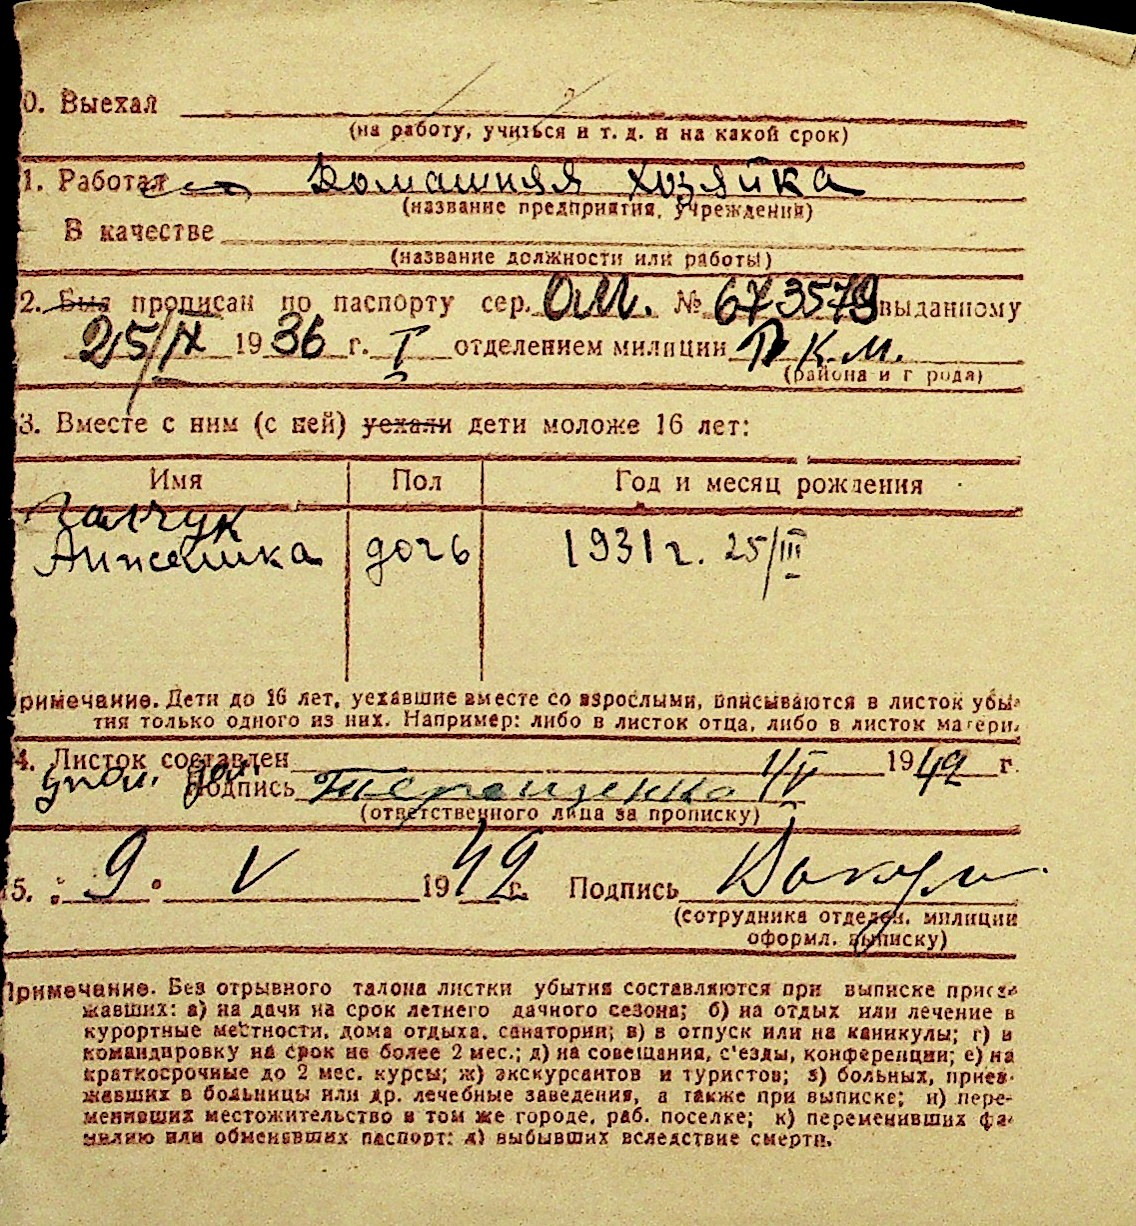 0. Выехал
(на работу, учиться и т. д. и на какой срок)
1. Работал Домашняя хозяйка
(название предприятия, учреждения)
В качестве
(название должности или работы)
2. Был прописан по паспорту сер. ОМ. № 673579 выданному
25/IX 1936 г. I отделением милиции Р К.М.
(района и г рода)
3. Вместе с ним (с ней) уехали дети моложе 16 лет:
Имя Пол Год и месяц рождения
Галчук
Анжелика дочь 1931 г. 25/III
римечание. Дети до 16 лет, уехавшие вместе со взрослыми, вписываются в листок убы-
тия только одного из них. Например: либо в листок отца, либо в листок матери.
4. Листок составлен 1/V 1949 г.
Подпись Терещенко
(ответственного лица за прописку)
15. 9. V 1949 г. Подпись
(сотрудника отделен. милиции
оформл. выписку)
Примечание. Без отрывного талона листки убытия составляются при выписке приез-
жавших: а) на дачи на срок летнего дачного сезона; б) на отдых или лечение в
курортные местности, дома отдыха, санатории; в) в отпуск или на каникулы; г) в
командировку на срок не более 2 мес.; д) на совещания, с'езды, конференции; е) на
краткосрочные до 2 мес. курсы; ж) экскурсантов и туристов; з) больных, приез-
жавших в больницы или др. лечебные заведения, а также при выписке; и) пере-
менивших местожительство в том же городе, раб. поселке; к) переменивших фа-
милию или обменявших паспорт; л) выбывших вследствие смерти.